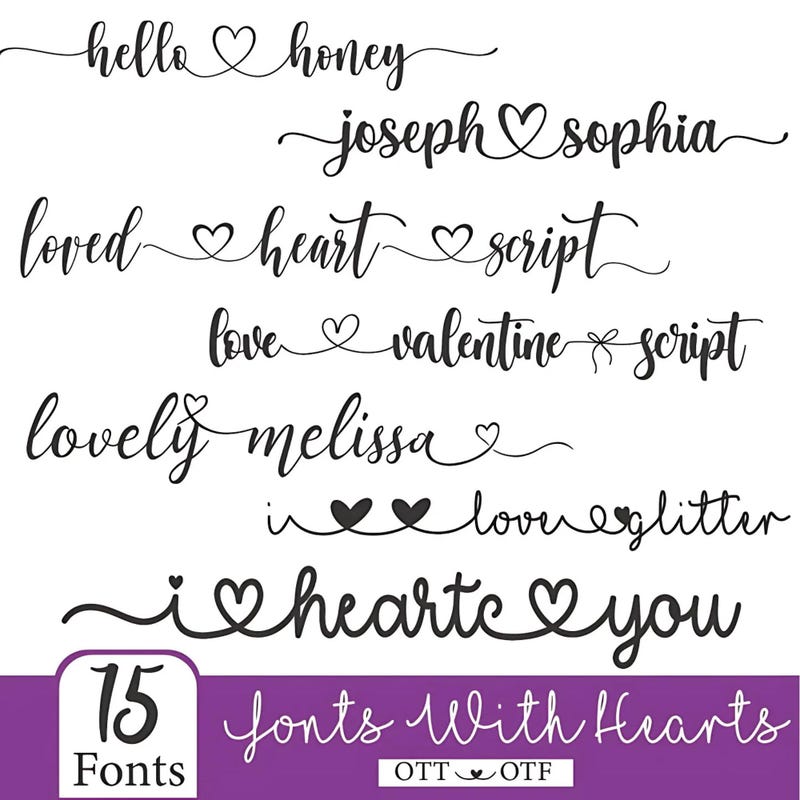 hello honey
joseph sophia
loved heart script
love valentine script
lovely melissa
i love glitter
i heart you
15
Fonts
Fonts With Hearts
OTT OTF